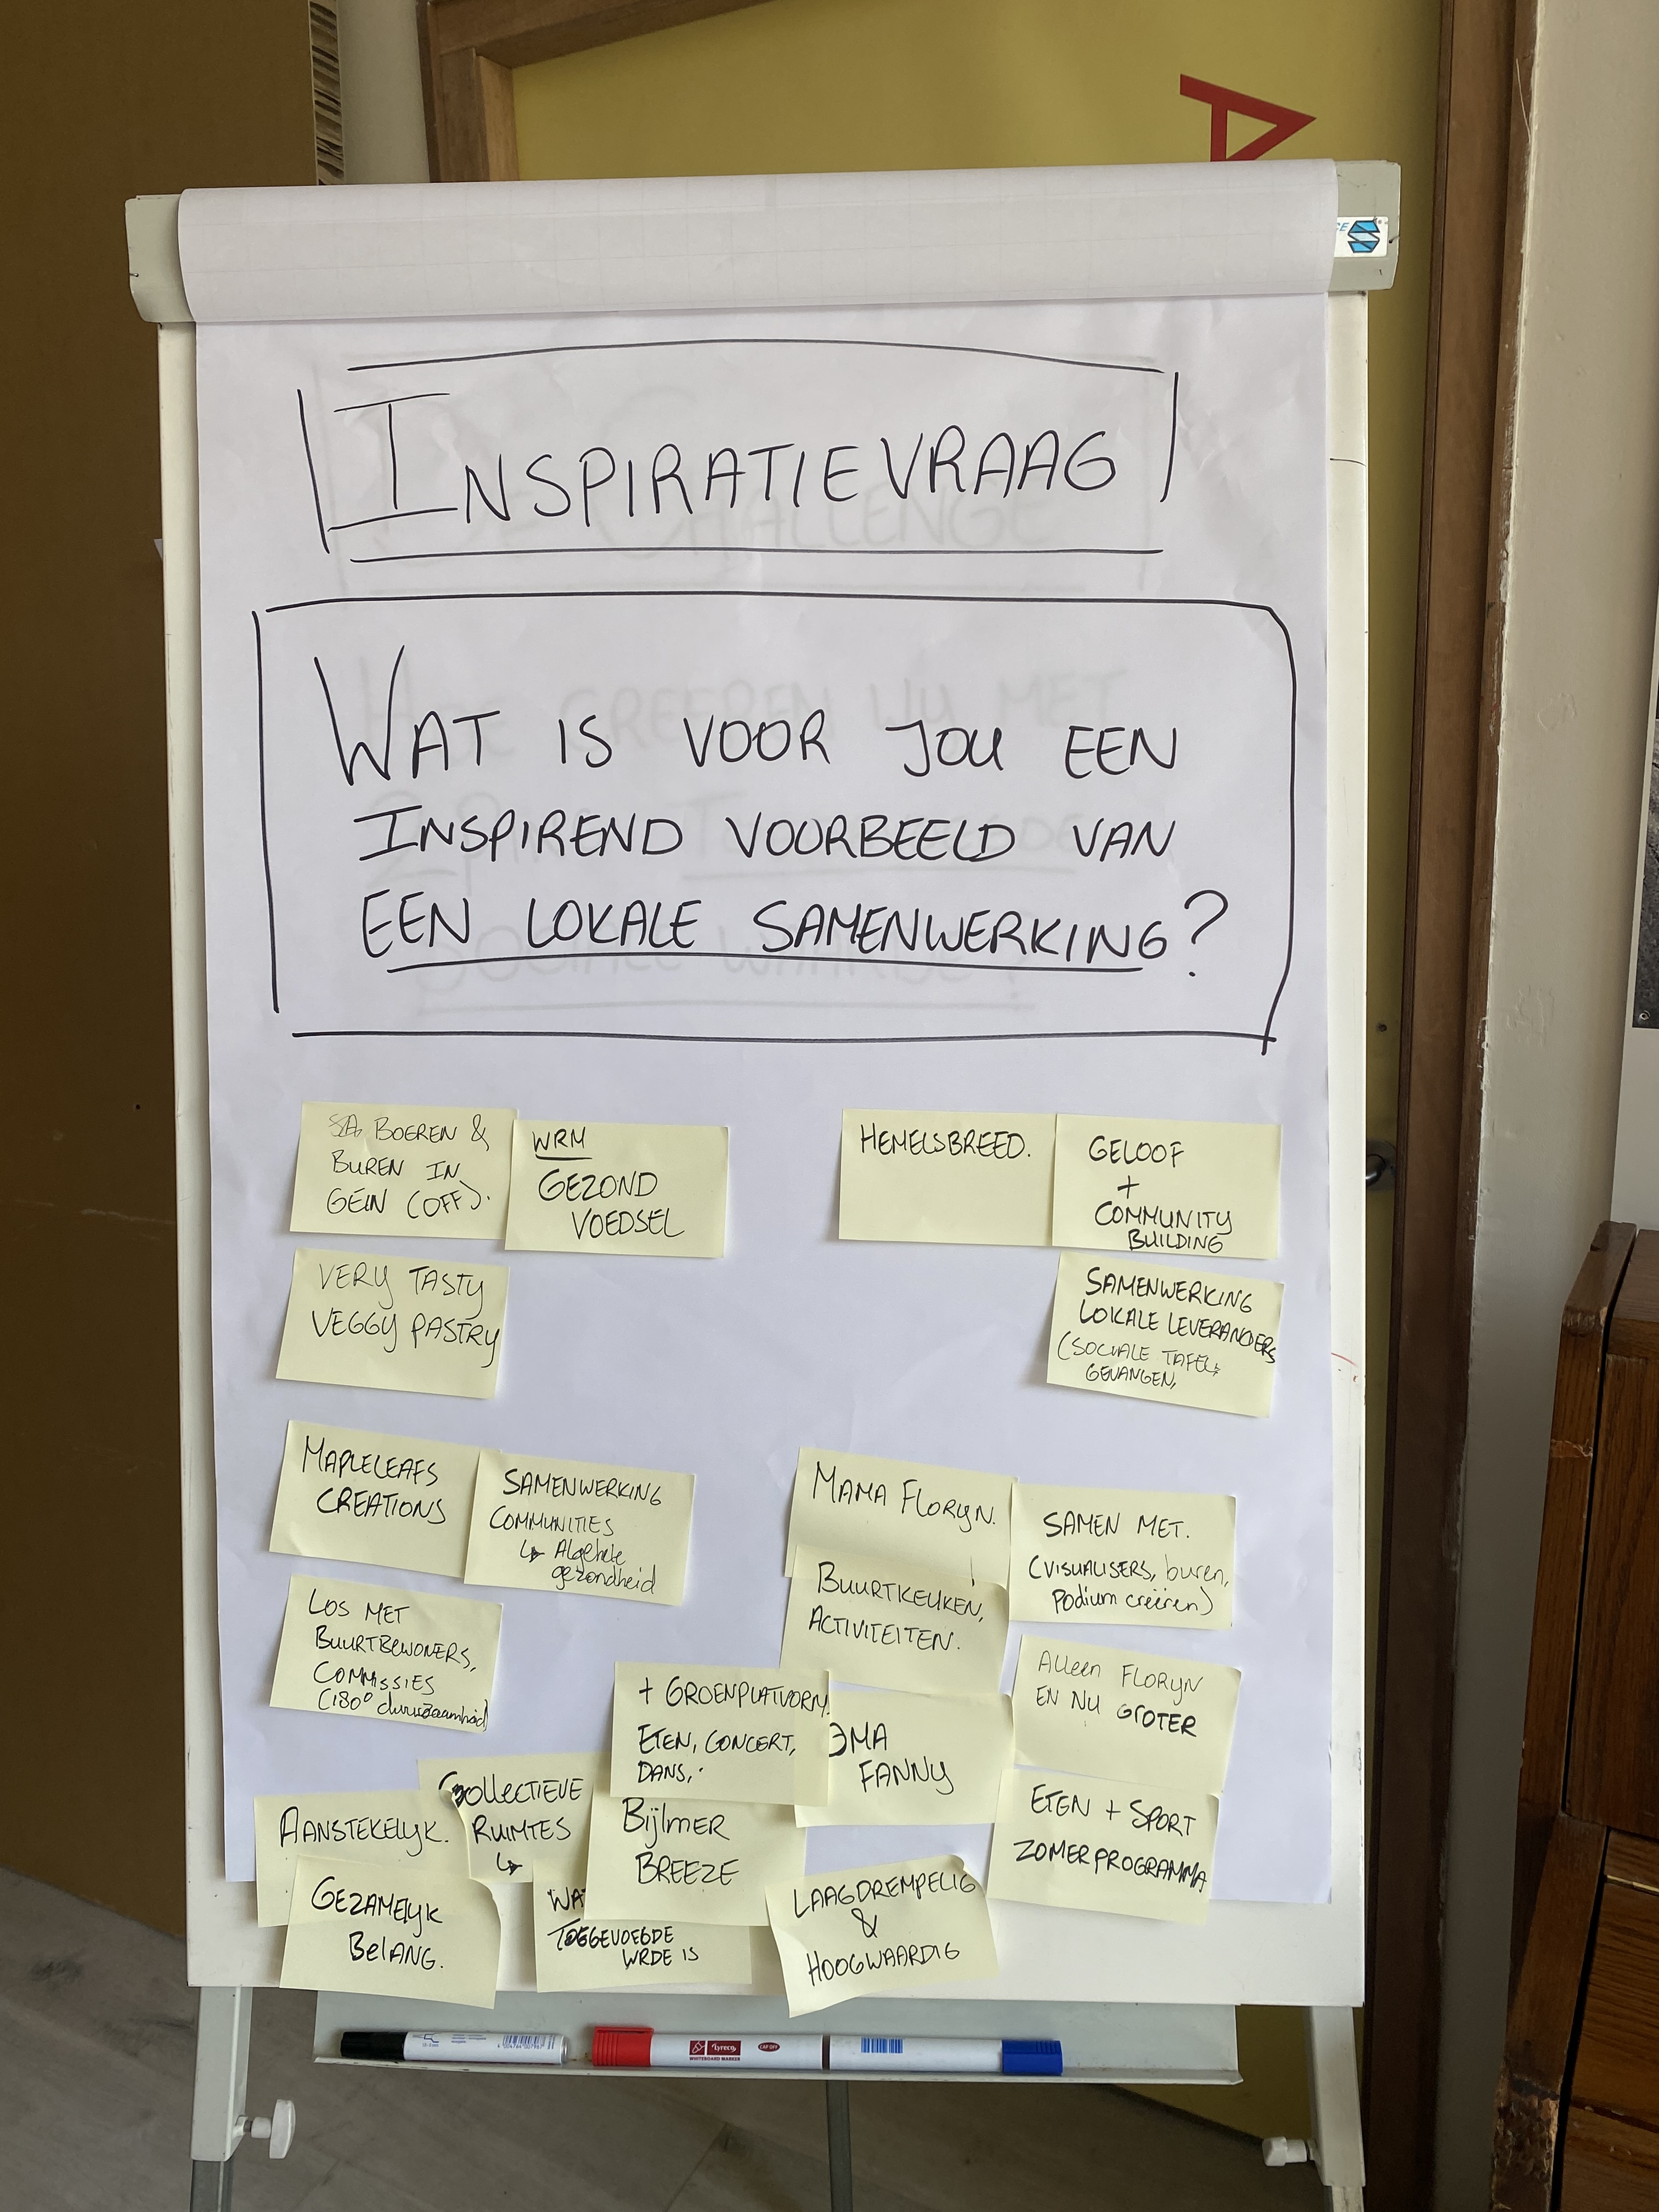 INSPIRATIEVRAAG
WAT IS VOOR JOU EEN
INSPIREND VOORBEELD VAN
EEN LOKALE SAMENWERKING?
BOEREN &
BUREN IN
GEIN (OFF).
WRM
GEZOND
VOEDSEL
VERY TASTY
VEGGY PASTRY
HEMELSBREED.
GELOOF
+
COMMUNITY
BUILDING
SAMENWERKING
LOKALE LEVERANCIERS
(SOCIALE TAFEL,
GEVANGEN,
MAPLELEAFS
CREATIONS
SAMENWERKING
COMMUNITIES
↳ Algehele
gezondheid
LOS MET
BUURTBEWONERS,
COMMISSIES
(180° duurzaamheid)
MAMA FLORIJN.
BUURTKEUKEN,
ACTIVITEITEN.
SAMEN MET.
(VISUALISERS, buren,
Podium creëren)
Alleen FLORIJN
EN NU GROTER
+ GROENPLATVORM
ETEN, CONCERT,
DANS,
OMA
FANNY
ETEN + SPORT
ZOMERPROGRAMMA
AANSTEKELIJK.
COLLECTIEVE
RUIMTES
↳
BIJLMER
BREEZE
GEZAMELIJK
BELANG.
WA
TOEGEVOEGDE
WRDE IS
LAAGDREMPELIG
&
HOOGWAARDIG
Lyreco
WHITEBOARD MARKER
CAP OFF